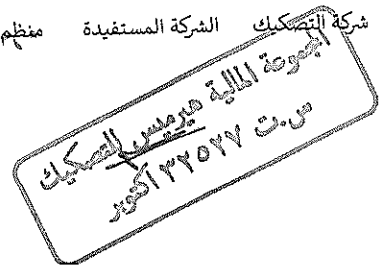 شركة التصكيك الشركة المستفيدة منظم
المجموعة المالية هيرميس للتصكيك
س.ت ٣٢٥٧٧ أكتوبر